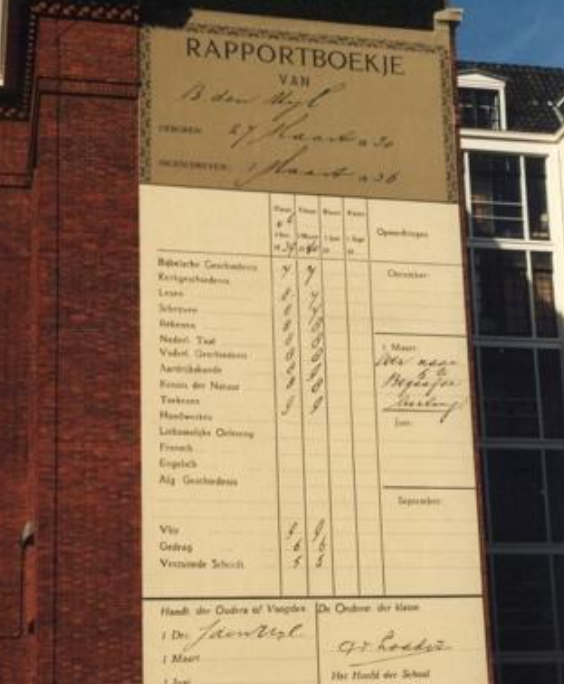 RAPPORTBOEKJE
VAN
B den Uyl
GEBOREN: 27 Maart a 30
INGESCHREVEN: 1 Maart a 36
Klasse Klasse Klasse Klasse
1 Dec. 1 Maart 1 Juni 1 Sept
19 39 19 40 19 19
Opmerkingen
Bijbelsche Geschiedenis 7 7
Kerkgeschiedenis
December:
Lezen 8 7
Schrijven 8 7
Rekenen 8 8
Nederl. Taal 8 8
Vaderl. Geschiedenis 8 8
1 Maart
Aardrijkskunde 8 8
Kennis der Natuur 8 8
Teekenen 9 9
Handwerken
Juni:
Lichamelijke Oefening
Fransch
Engelsch
Alg. Geschiedenis
September:
Vlijt 9 9
Gedrag 6 6
Verzorgde Schrift 5 5
Handt. der Ouders of Voogden
1 Dec. J den Uyl.
1 Maart
1 Juni
De Onderw. der klasse
Het Hoofd der School